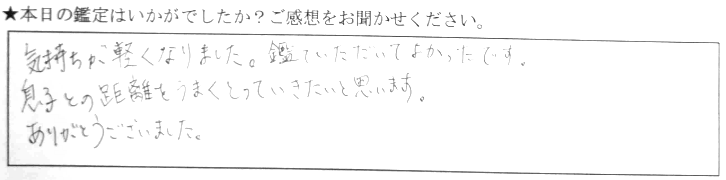 ★本日の鑑定はいかがでしたか？ご感想をお聞かせください。
気持ちが軽くなりました。鑑ていただいてよかったです。
息子との距離をうまくとっていきたいと思います。
ありがとうございました。